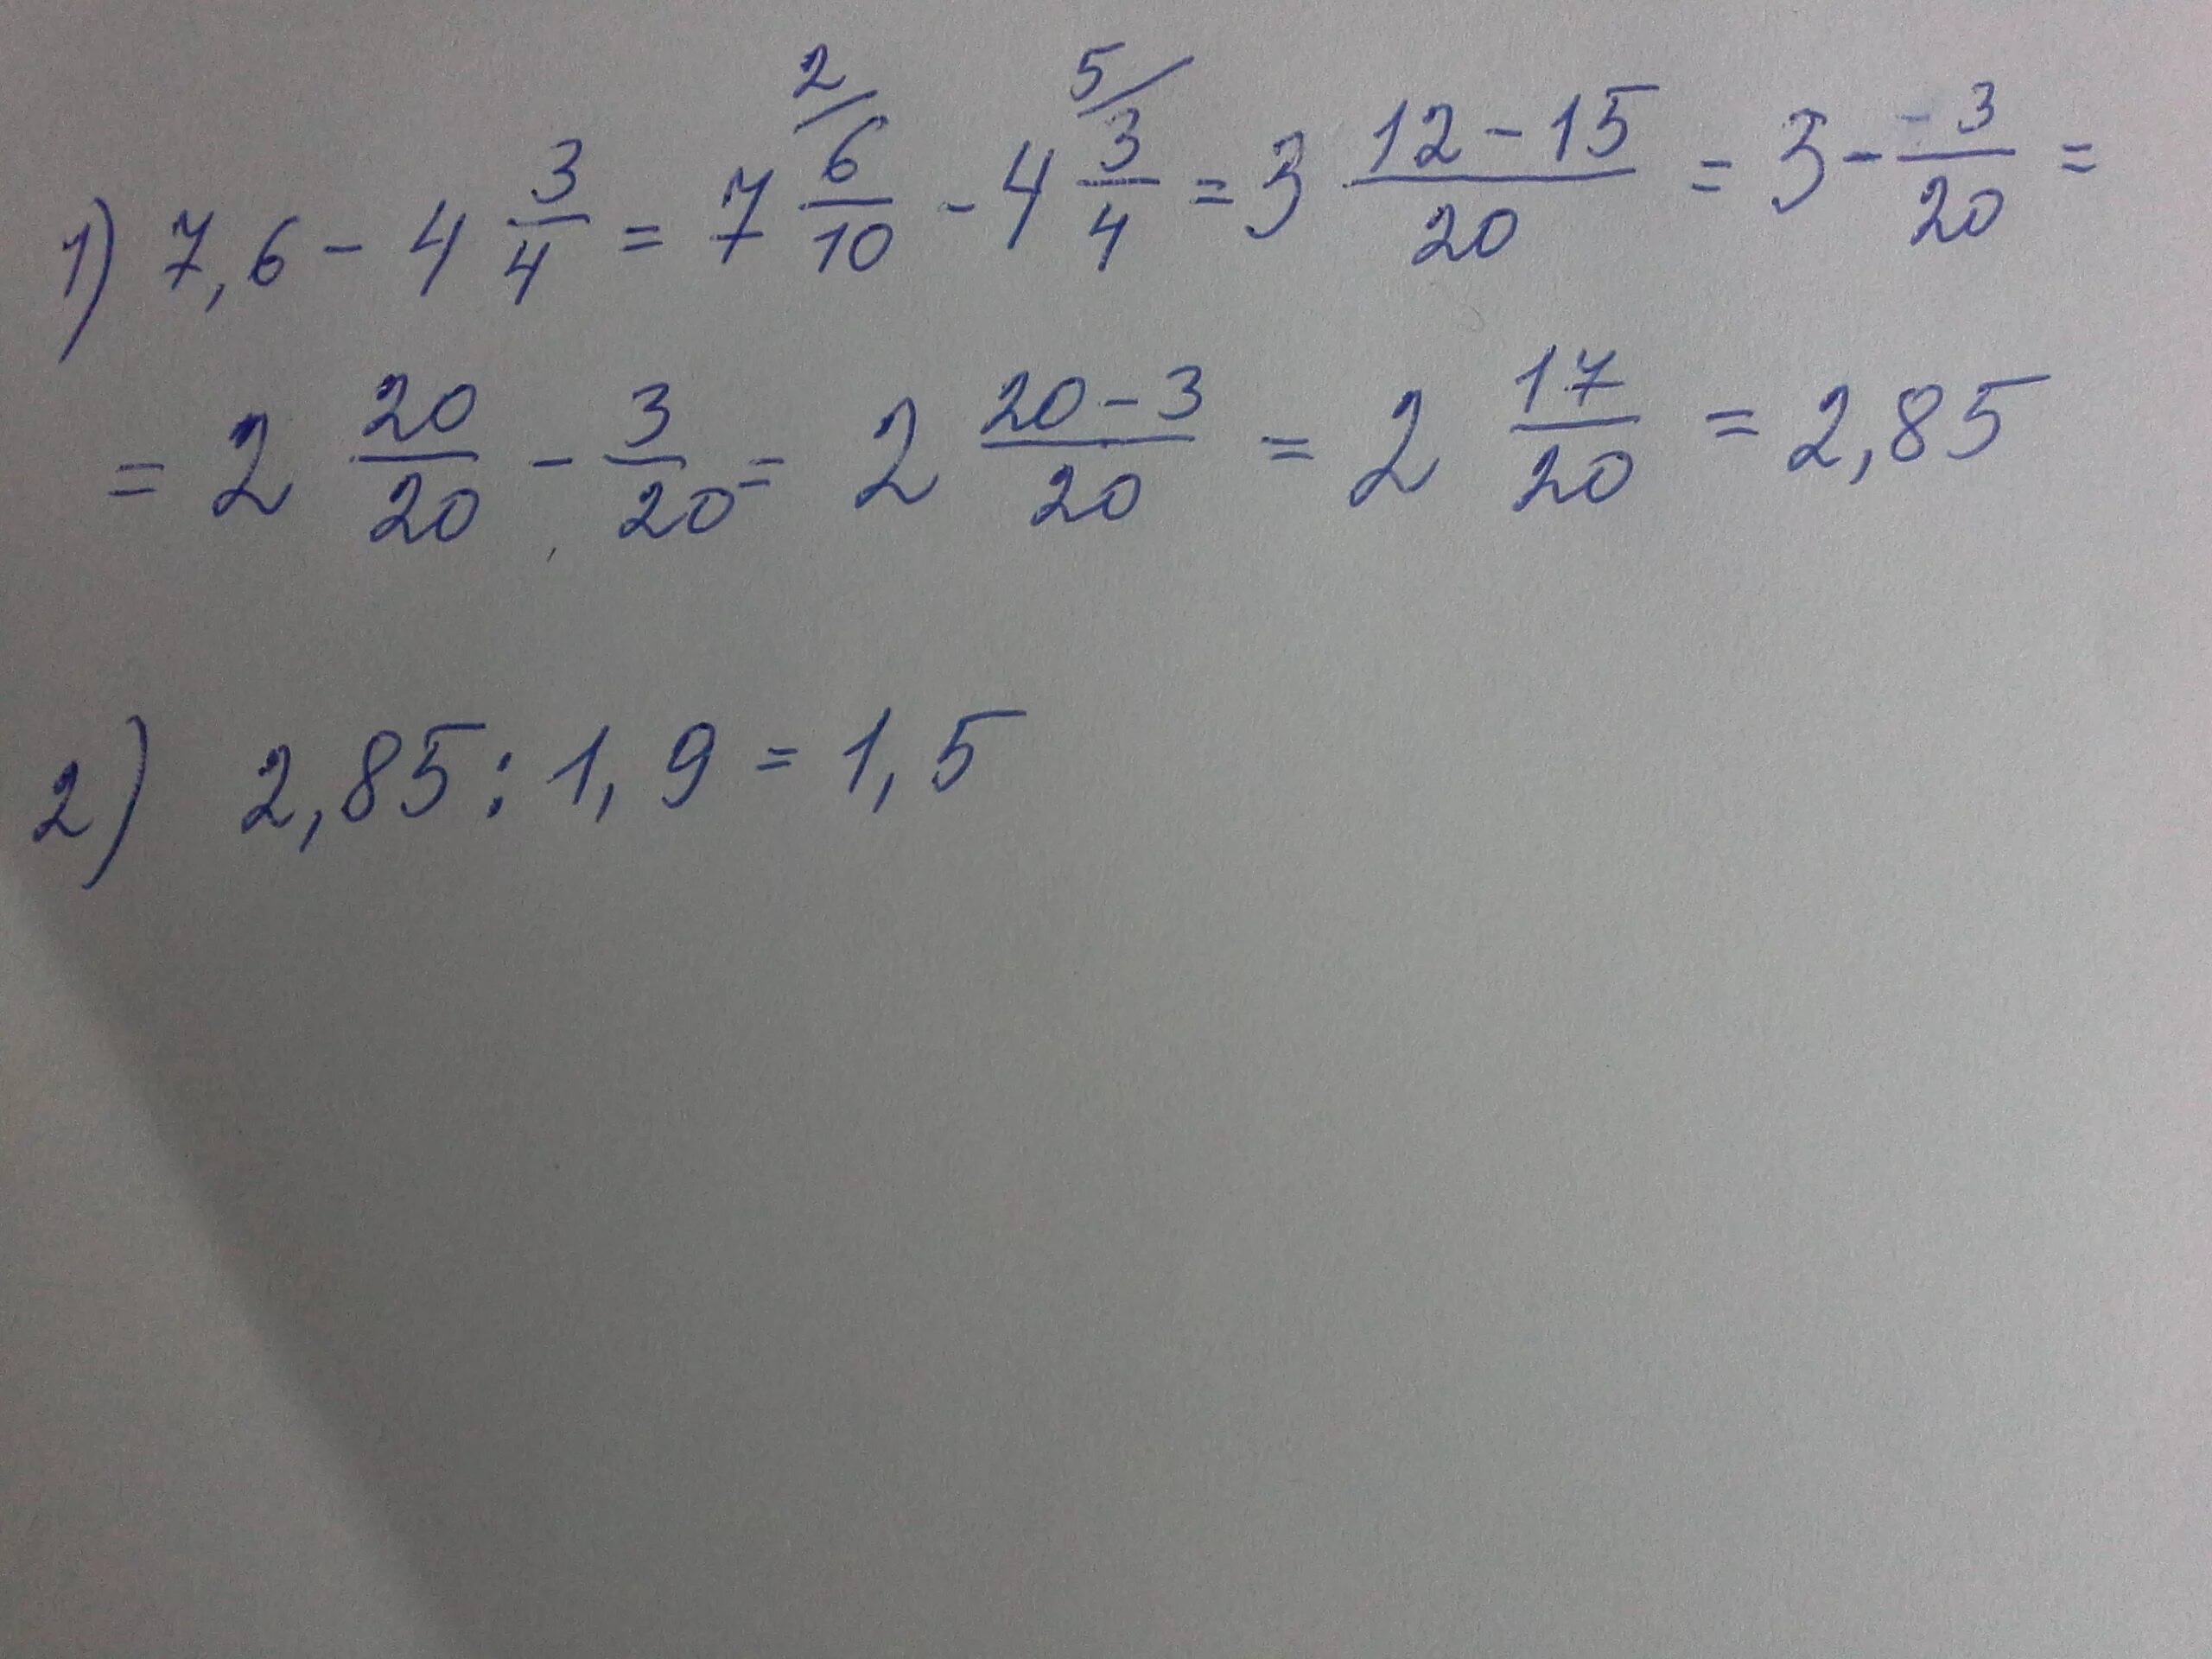 1) 7,6 - 4 3/4 = 7 2/ 6/10 - 4 5/ 3/4 = 3 12-15/20 = 3 - -3/20 =
= 2 20/20 - 3/20 = 2 20-3/20 = 2 17/20 = 2,85
2) 2,85 : 1,9 = 1,5